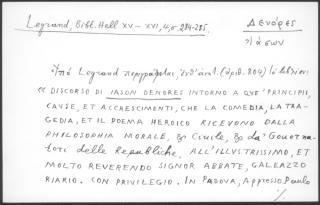 Legrand, Bibl. Hell XV - XVI, 4, σ. 284-285.
Δενόρες
Ἰάσων
Ὑπό Legrand περιγράφεται, ἐνθ' ἀνωτ. (ἀριθ. 804) ἡ ἔκδοσις
« DISCORSO DI IASON DENORES INTORNO A QUE' PRINCIPII,
CAUSE, ET ACCRESCIMENTI, CHE LA COMEDIA, LA TRA-
GEDIA, ET IL POEMA HEROICO RICEVONO DALLA
PHILOSOPHIA MORALE, & Civile, & da' Governa-
tori delle Republiche. ALL'ILLUSTRISSIMO, ET
MOLTO REVERENDO SIGNOR ABBATE, GALEAZZO
RIARIO. CON PRIVILEGIO. IN PADOVA, Appresso Paulo
%